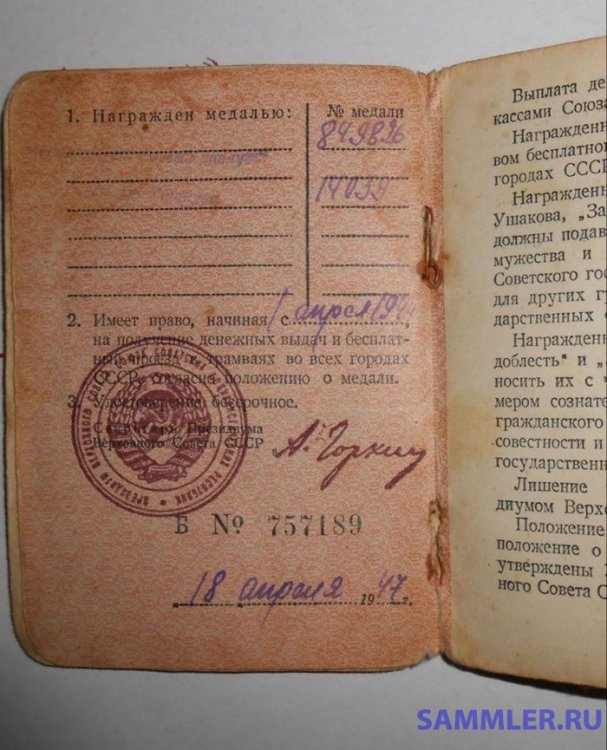 1. Награжден медалью:
№ медали
849826
14039
2. Имеет право, начиная с апреля
на получение денежных выдач и бесплат-
ный проезд в трамваях во всех городах
СССР, согласно положению о медали.
3. Удостоверение бессрочное.
Секретарь Президиума
Верховного Совета СССР
А. Горкин
Б № 757189
18 апреля 1947 г.
Выплата де
кассами Союза
Награжденн
вом бесплатно
городах СССР
Награжденн
Ушакова, „За
должны подав
мужества и
Советского гос
для других г
дарственных
Награжденн
доблесть" и „
носить их с
мером сознате
гражданского
совестности и
государственн
Лишение
диумом Верхо
Положение
положение о
утверждены
ного Совета С
SAMMLER.RU